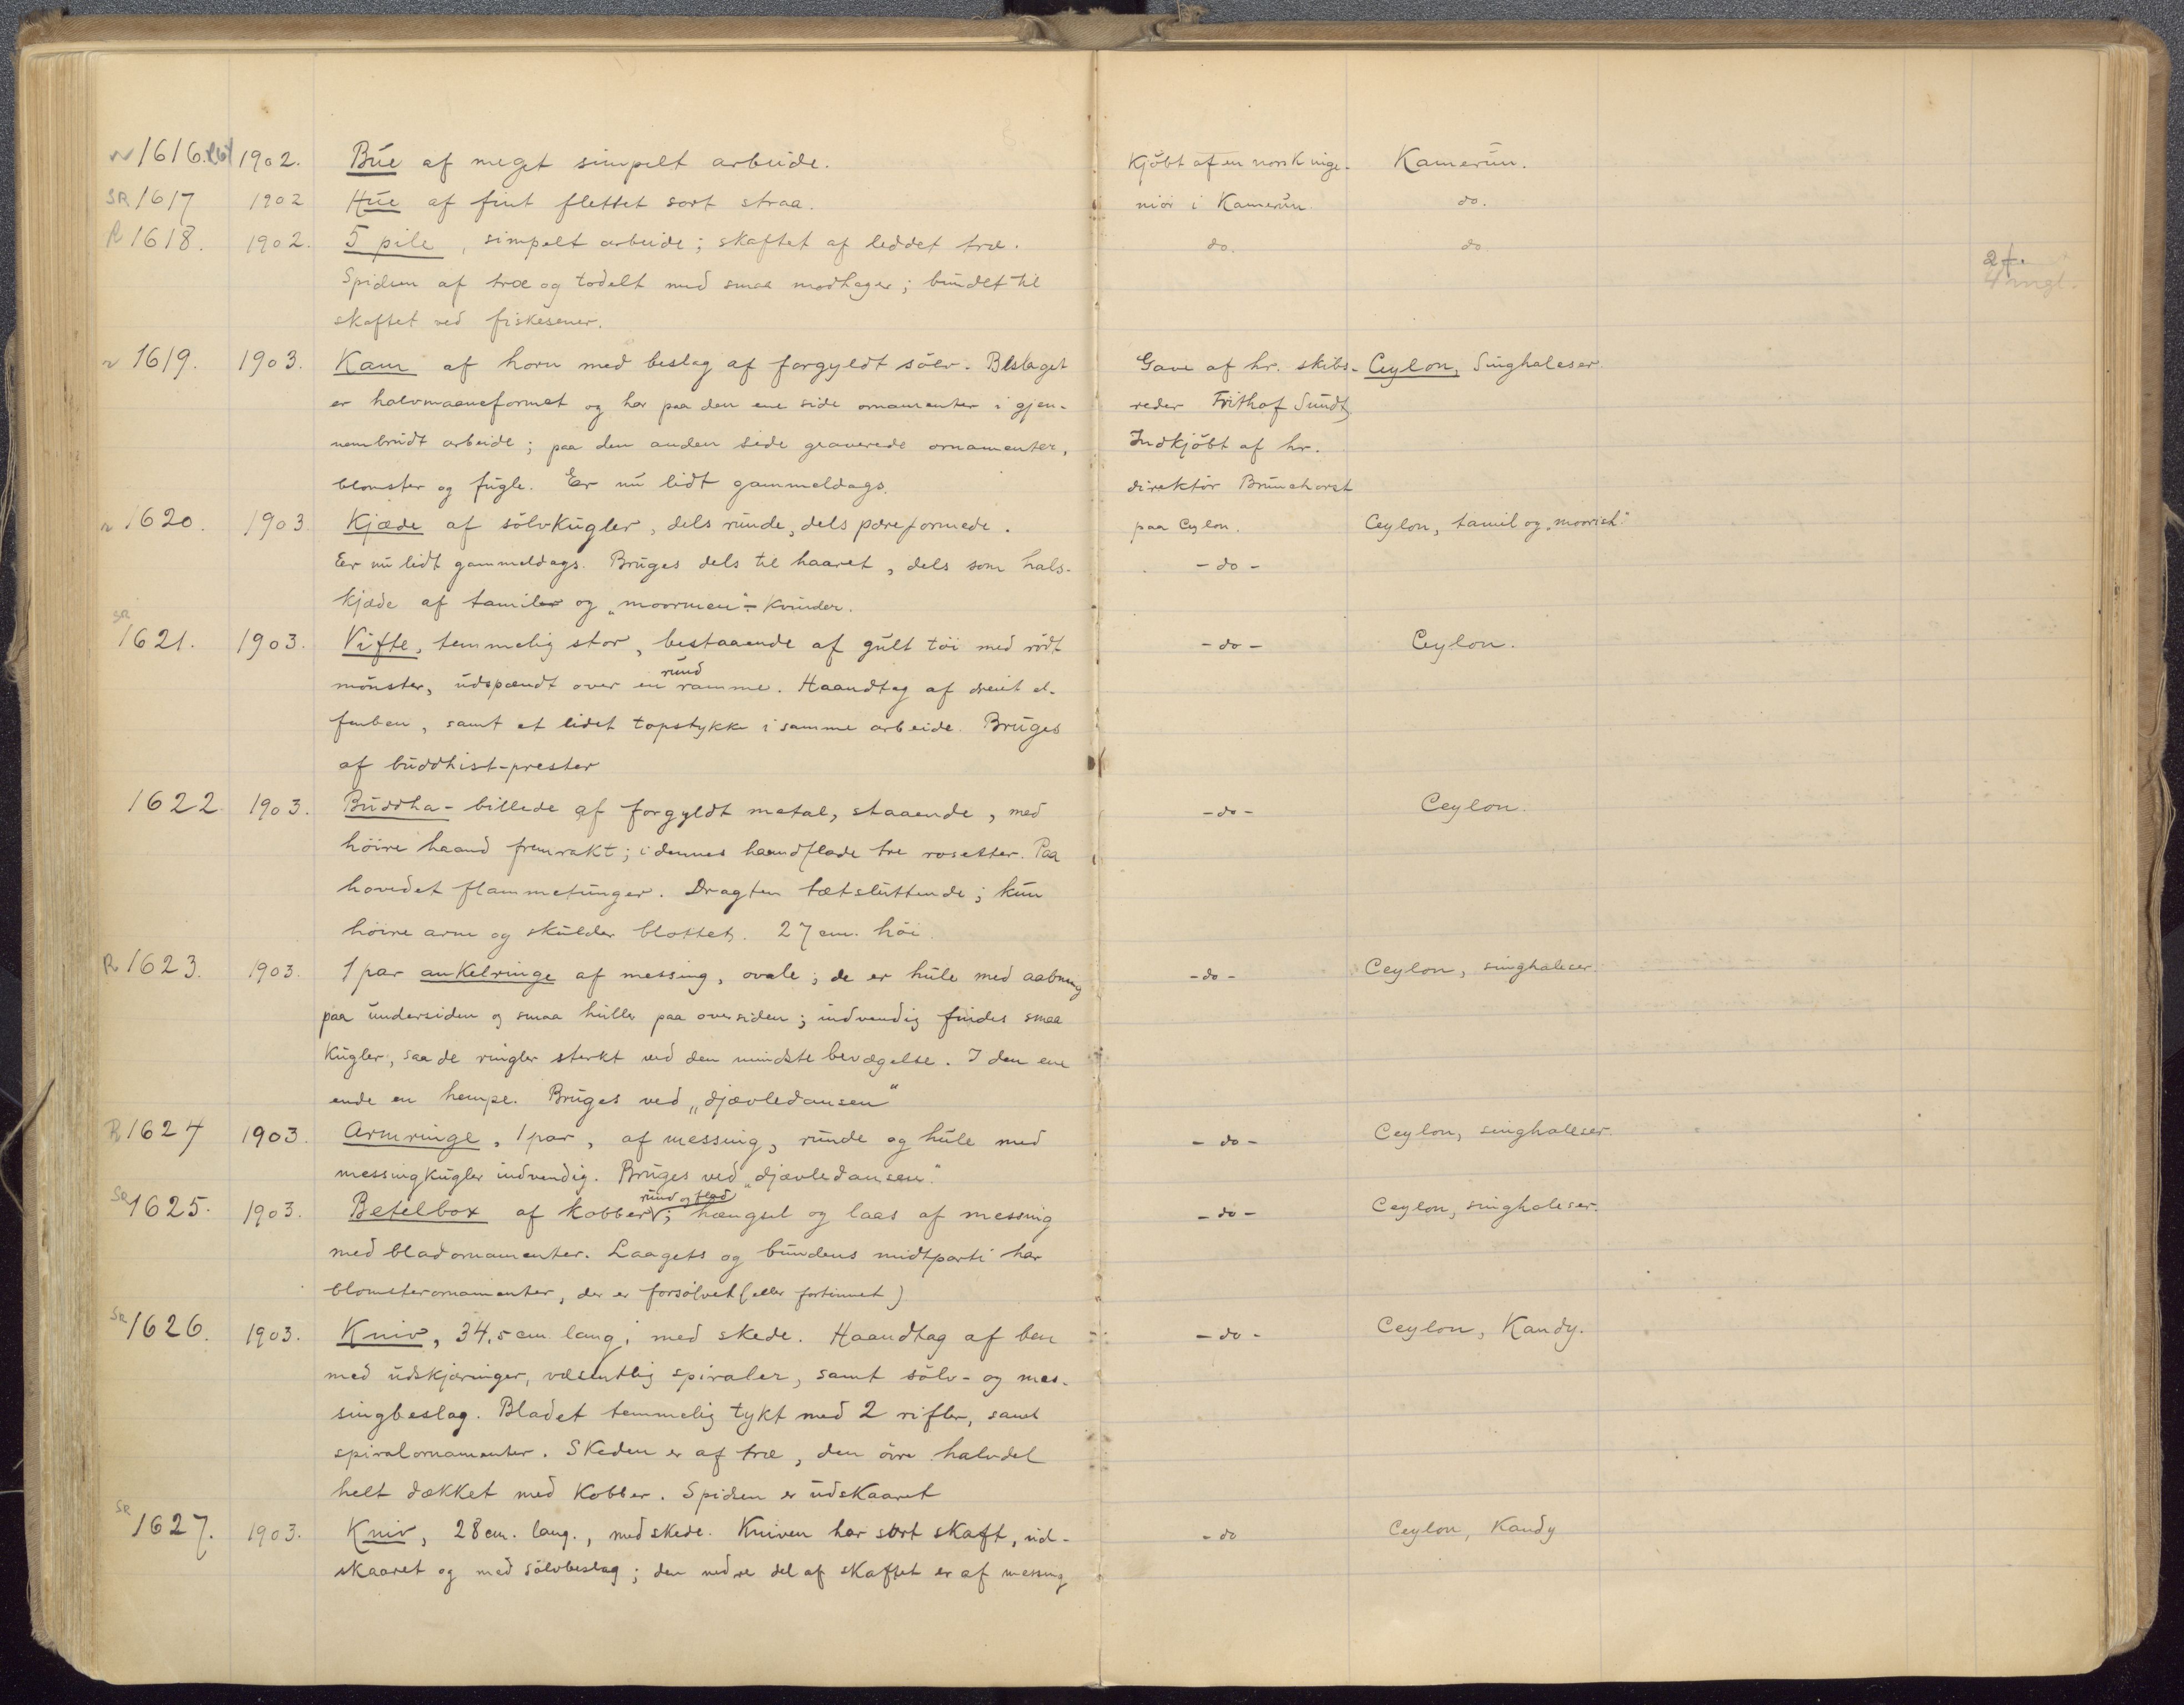 1616. 1902. Bue af meget simpelt arbeide. Kjöbt af en norsk inge- Kamerun.
SR 1617 1902 Hue af fint flettet sort straa. niör i Kamerun. do.
R 1618. 1902. 5 pile, simpelt arbeide; skaftet af leddet træ. do. do
Spidsen af træ og todelt med smaa modhager; bundet til 2 f.
skaftet ved fiskesener. 4 mgl.
1619. 1903. Kam af horn med beslag af forgyldt sölv. Beslaget Gave af hr. skibs- Ceylon, Singhaleser
er halvmaaneformet og har paa den ene side ornamenter i gjen- reder Frithof Sundt,
nembrudt arbeide; paa den anden side graverede ornamenter, Indkjöbt af hr.
blomster og fugle. Er nu lidt gammeldags. direktör Brunchorst
1620. 1903 Kjæde af sölvkugler, dels runde, dels pæreformede. paa Ceylon. Ceylon, tamil og „moorish."
Er nu lidt gammeldags. Bruges dels til haaret, dels som hals- - do -
kjæde af tamiler og „moormen"- kvinder.
SR 1621. 1903. Vifte, temmelig stor, bestaaende af gult töi med rödt - do - Ceylon.
mönster, udspændt over en rund ramme. Haandtag af dreiet el-
fenben, samt et lidet topstykke i samme arbeide. Bruges
af buddhist-prester
1622 1903. Buddha-billede af forgyldt metal, staaende, med - do - Ceylon.
höire haand fremrakt; i dennes haandflade tre rosetter. Paa
hovedet flammetunger. Dragten tætsluttende; kun
höire arm og skulder blottet. 27 cm. höi
R 1623. 1903. 1 par ankelringe af messing, ovale; de er hule med aabning - do - Ceylon, singhaleser
paa undersiden og smaa huller paa oversiden; indvendig findes smaa
kugler, saa de ringler sterkt ved den mindste bevægelse. I den ene
ende en hempe. Bruges ved „djævledansen"
R 1624 1903. Armringe, 1 par, af messing, runde og hule med - do - Ceylon, singhaleser.
messingkugler indvendig. Bruges ved „djævledansen."
SR 1625. 1903. Betelbox af kobber, rund og flad; hængsel og laas af messing - do - Ceylon, singhaleser.
med bladornamenter. Laagets og bundens midtparti har
blomsterornamenter, der er forsölvet (eller fortinnet)
SR 1626. 1903. Kniv, 34,5 cm lang; med skede. Haandtag af ben - do - Ceylon, Kandy.
med udskjæringer, væsentlig spiraler, samt sölv- og mes-
singbeslag. Bladet temmelig tykt med 2 rifler, samt
spiralornamenter. Skeden er af træ, den övre halvdel
helt dækket med kobber. Spidsen er udskaaret
SR 1627. 1903. Kniv, 28 cm. lang., med skede. Kniven har sort skaft, ud- - do Ceylon, Kandy
skaaret og med sölvbeslag; den nedre del af skaftet er af messing